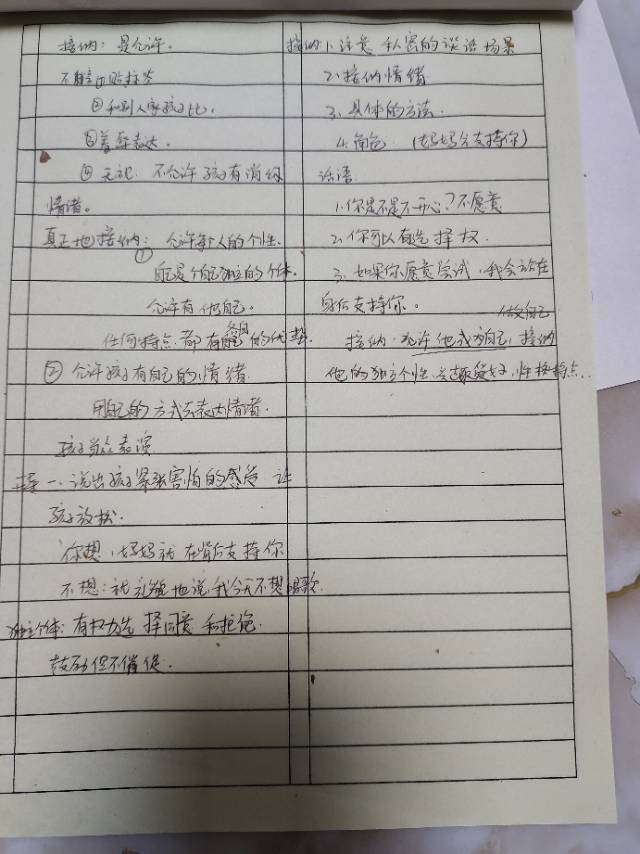 接纳：是允许。
不能①贴标签
②和别人家孩子比，
③羞辱表达。
④ 无视. 不允许孩子有消极
情绪。
真正地接纳：允许每个人的个性.
①
自己是个独立的个体.
允许有他自己。
任何特点都有各自的优势.
② 允许孩子有自己的情绪.
用自己的方式去表达情绪.
孩子当众表演
一、说出孩子紧张害怕的感受 让
孩子放松.
你想，妈妈就在背后支持你
不想：就礼貌地说我今天不想唱歌.
独立个体：有权力选择同意和拒绝.
鼓励但不催促.
接纳 1. 注意 私密的谈话场景
2. 接纳情绪
3. 具体的方法.
4. 角色. (妈妈会支持你)
话语.
1. 你是不是不开心？不愿意
2. 你可以有选择权.
3. 如果你愿意尝试，我会站在
身后支持你。
做自己
接纳：允许他成为自己，接纳
他的独立个性、兴趣爱好，性格特点...